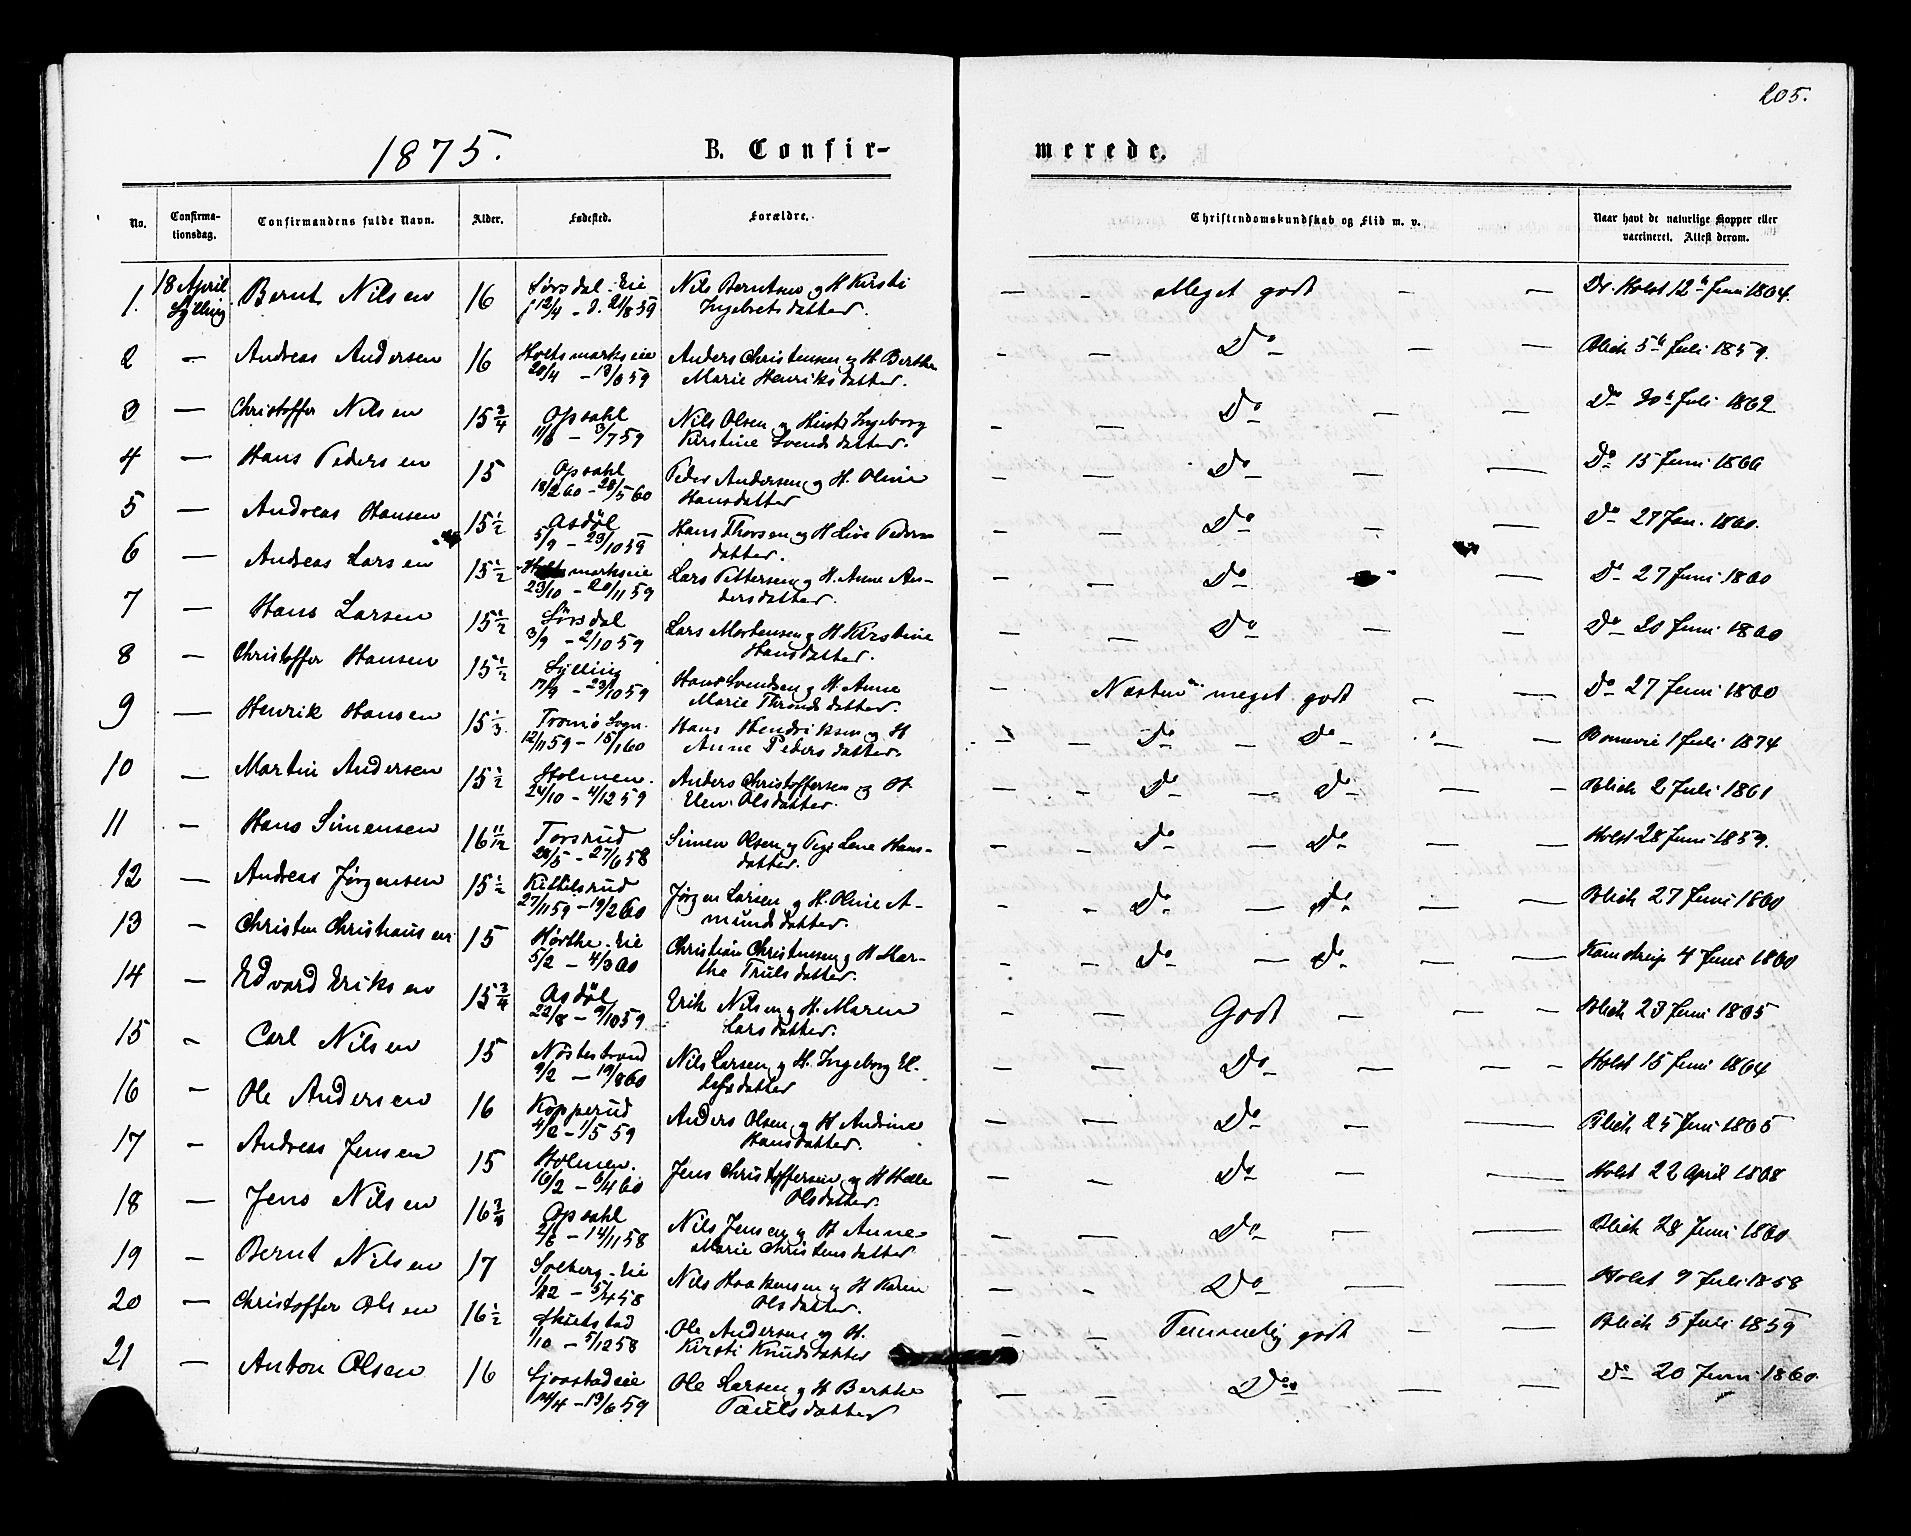 205.
1875. B. Confir- merede.
No. Confirma-tionsdag. Confirmandens fulde Navn. Alder. Fødested. Forældre. Christendomskundskab og Flid m. v. Naar havt de naturlige Kopper eller vaccineret. Attest derom.
1. 18 April Sylling Bernt Nilsen 16 Sørsdal-Eie Nils Berntsen og H Kirsti — - Meget godt - — Dr. Holst 12te Juni 1864.
12/4 - d. 21/8 59 Ingebretsdatter.
2 — Andreas Andersen 16 Holtsmarkseie Anders Christensen og H. Berthe — — Do — — Blich 5te Juli 1859.
Marie Henriksdatter.
3 — Christoffer Nilsen 15 3/4 Opsahl Nils Olsen og Hust. Ingeborg — — Do — — Do 30te Juli 1862
11/6 - 3/7 59 Kirstine Svendsdatter.
4 — Hans Pedersen 15 Opsahl Peder Andersen og H. Oline — — Do — — Do 15 Juni 1866
18/2 60 - 28/5 60 Hansdatter
5 — Andreas Hansen 15 1/2 Asdøl Hans Thorsen og H Live Peders- — — Do — — Do 27 Jan. 1860.
5/9 - 23/10 59 datter.
6 — Andreas Larsen 15 1/2 Holtsmarkseie Lars Pettersen og H. Anne An- — — Do — Do 27 Juni 1860
23/10 - 20/11 59 dersdatter.
7 — Hans Larsen 15 1/2 Sørsdal Lars Mortensen og H Kirstine — — Do — — Do 20 Juni 1860
3/9 - 2/10 59 Hansdatter.
8 — Christoffer Hansen 15 1/2 Sylling Hans Svendsen og H. Anne — Næsten meget godt - — Do 27 Juni 1860
17/9 - 23/10 59 Marie Throndsdatter.
9 — Henrik Hansen 15 1/3 Tromø Sogn. Hans Hendriksen og H — Do — Do — 1 Juli 1874
12/11 59 - 15/1 60 Anne Pedersdatter.
10 — Martin Andersen 15 1/2 Holmen. Anders Christoffersen og H — - Do — Do — - Blich 2 Juli 1861
24/10 - 4/12 59 Elen Olsdatter.
11 - Hans Simensen 16 11/12 Torsrud Simen Olsen og Pige Lene Hans- — - Do — Do — — Holst 28 Juni 1859.
- 27/6 58 datter.
12 — Andreas Jørgensen 15 1/2 Kittilsrud Jørgen Larsen og H. Oline A- - - Do — Do — — Blich 27 Juni 1860
27/11 59 - 19/2 60 mundsdatter.
13 - Christen Christiansen 15 Hørthe-Eie Christian Christensen og H Mar- — - Do — Do — — Kamstrup 4 Juni 1860
5/2 - 4/3 60 the Trulsdatter.
14 - Edvard Eriksen 15 3/4 Asdøl Erik Nilsen og H. Maren — — Godt - — - Blich 23 Juni 1865
22/8 - 9/10 59 Larsdatter.
15 - Carl Nilsen 15 Nøstestrand Nils Larsen og H. Ingeborg E- — — Do — — - Holst 15 Juni 1864
9/2 - 19/8 60 lefsdatter
16 - Ole Andersen 16 Kopperud Anders Olsen og H Andrine — — Do - — Blich 25 Juni 1865
4/2 - 1/5 59 Hansdatter.
17 - Andreas Jensen 15 Holmen. Jens Christoffersen og H Helle — - Do — — Holst 22 April 1868
16/2 - 6/4 60 Olsdatter.
18 — Jens Nilsen 16 3/4 Opsahl Nils Jensen og H Anne — — Do — — Blich 28 Juni 1860
2/6 - 14/11 58 Marie Christensdatter
19 - Bernt Nilsen 17 Solberg-Eie Nils Haakensen og H Karen — - Do — — Holst 9 Juli 1858
- 5/4 58 Olsdatter.
20 — Christoffer Olsen 16 1/2 Ole Andersen og H. — — Temmelig godt — — Blich 5 Juli 1859
1/10 - 5/12 58 Kirsti Knudsdatter
21 — Anton Olsen 16 Sjaastadeie Ole Larsen og H Berthe — — Do — — Do 20 Juni 1860.
14/4 - 13/6 59 Paulsdatter